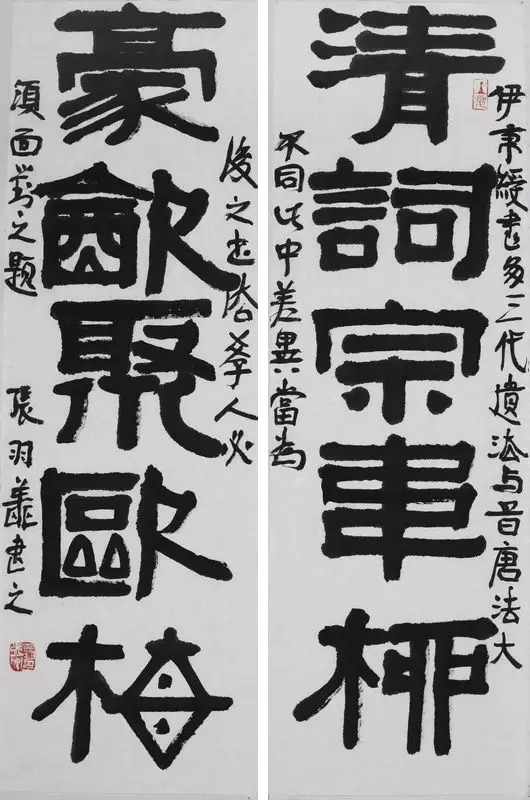 清詞宗韋柳
伊秉綬書多三代遺法与晋唐法大
不同此中差異當為
豪㱃聚歐梅
後之學人必
須面對之題
張羽翔書之